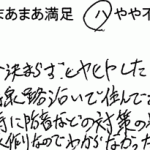 まあまあ満足 ハ やや不
決まらずヒヤヒヤした
線路沿いで住んで
特に防音などの対策の
作なのでわからなかった